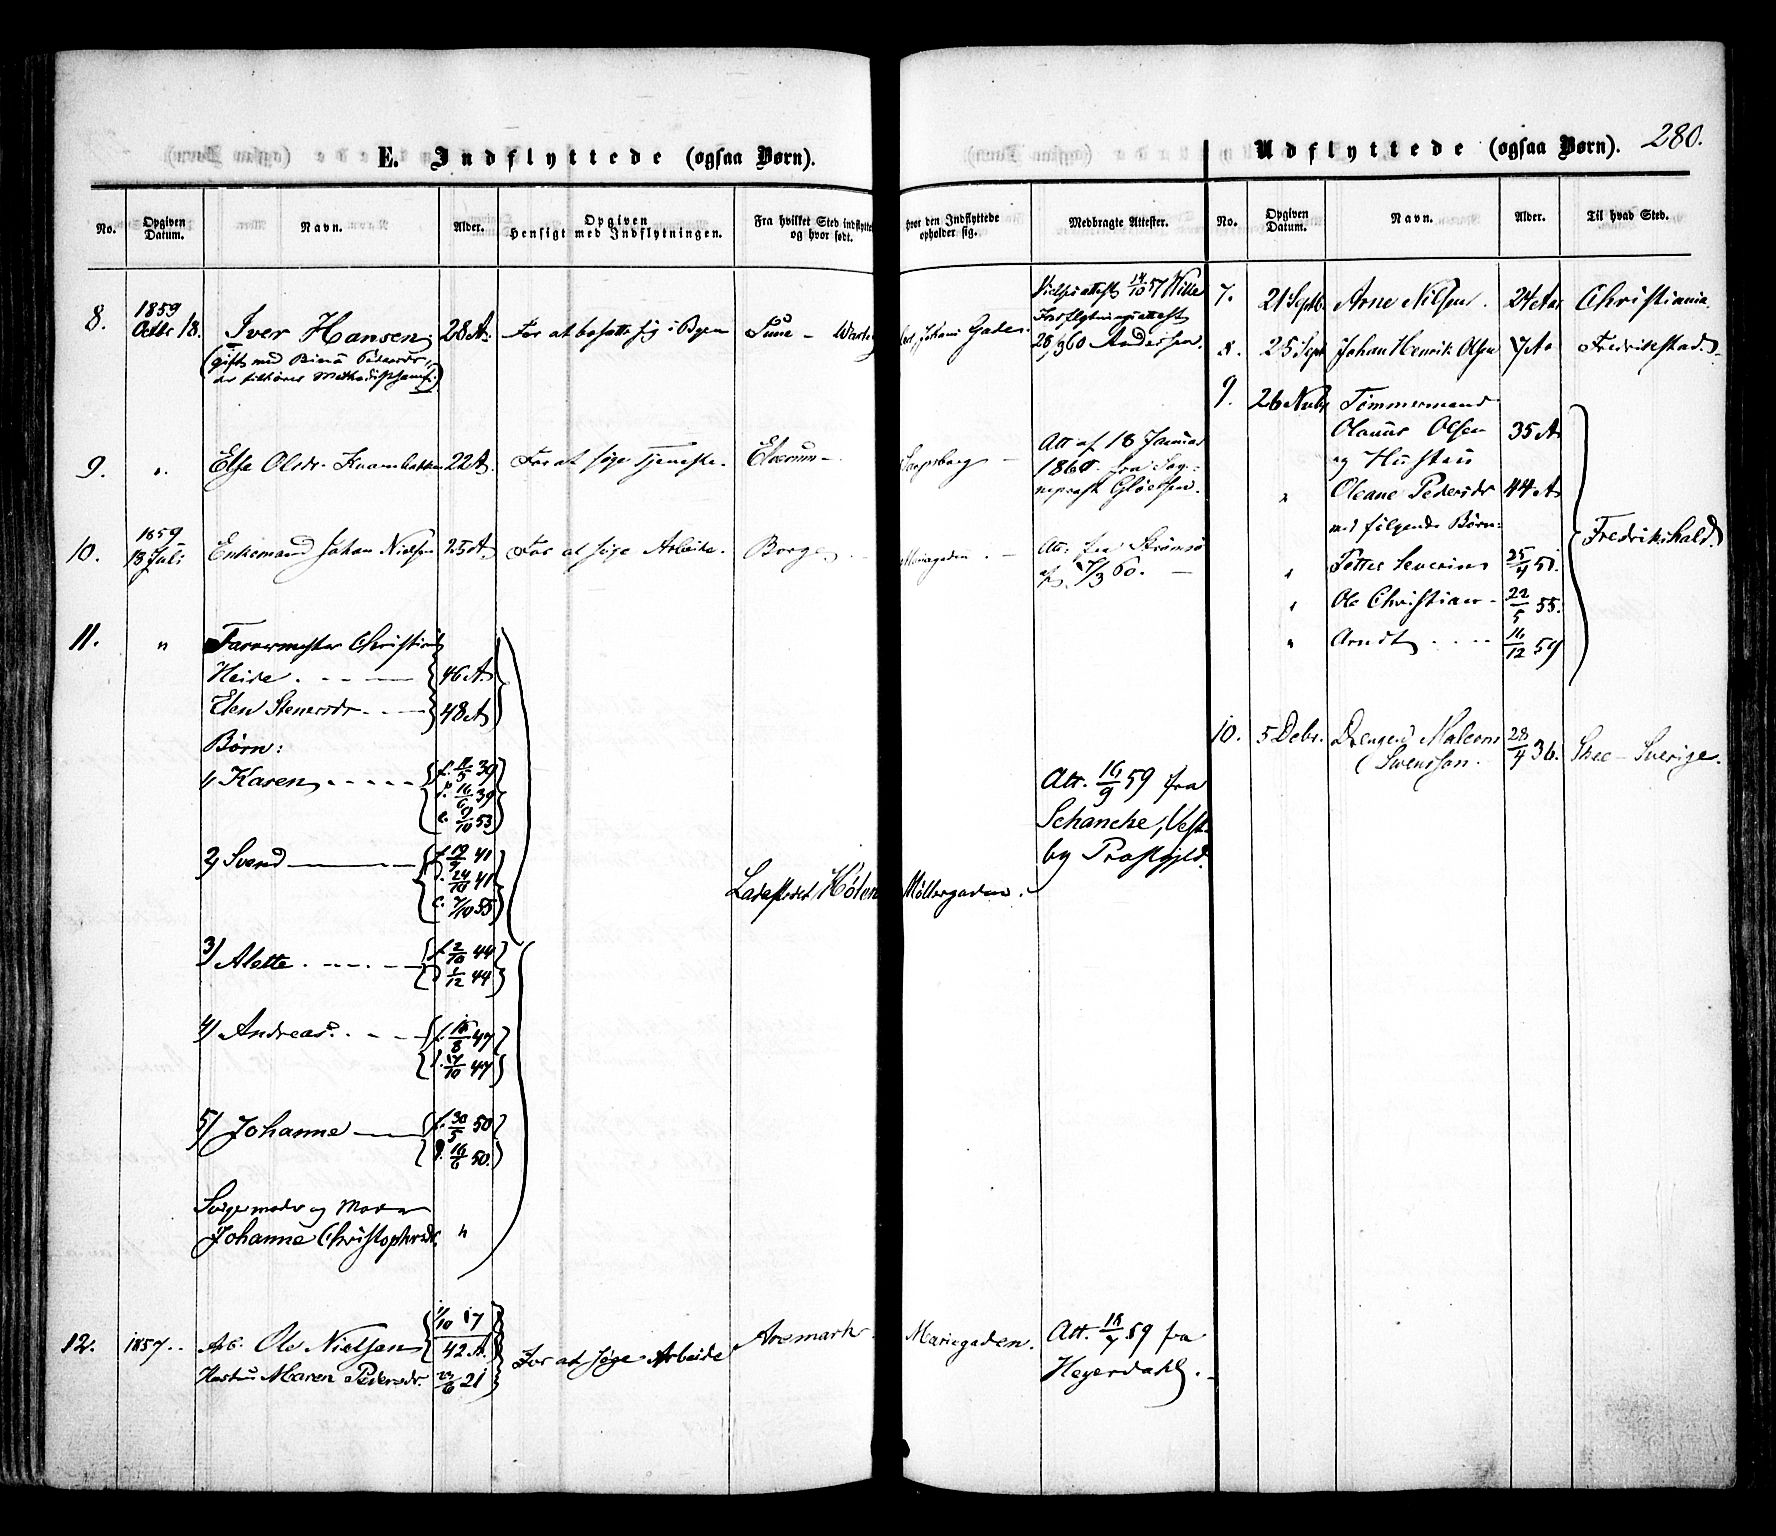 280.
E. Indflyttede (ogsaa Børn).
No.
Opgiven Datum.
Navn.
Alder.
Opgiven Hensigt med Indflytningen.
Fra hvilket Sted indflyttet og hvor født.
hvor den Indflyttede opholder sig.
Medbragte Attester.
8. 1859 Octbr 18. Iver Hansen 28 A. For at bosætte sig i Byen Tune -
(gift med Pedersdr.,
der tilhører Methodistsamf.)
14/10 57 Wille
28/3 60 Andersen.
9. " Else Olsdr. 22 A. For at søge Tjeneste. Elverum - Sarpsborg - Att af 18 Januar
1860 fra Sog-
neprest
10. 1859 13 Juli Enkemand Johan Nielsen 25 A. For at søge Arbeide. Borge Mariegaden. - Att. fra Strømsø
af 17/3 60. -
11. " Farvermester Christian
Heide. 46 A.
Elen Stenersdr. 48 A
Børn:
1, Karen f. 11/5 39
16/6 39
c. 9/10 53
2, Svend f. 19/9 41
24/10 41
c. 7/10 55
3/ Alette f. 2/10 44
1/12 44
4/ Andreas f. 15/8 47
17/10 47
5/ Johanne f. 30/5 50
16/6 50.
Svigermoder og Moder
Johanne Christophersdr. "
Ladestedet Hølen Møllergaden.
Att. 16/9 59 fra
Schanche, Vest-
by Præstegjeld.
12. 1857. Arb. Ole Nielsen 1/10 17
42 A.
Hustru Maren Pedersdr. 23/6 21
For at søge Arbeide Aremark Mariegaden. Att. 18/7 59 fra
Heyerdahl.
Udflyttede (ogsaa Børn).
No.
Opgiven Datum.
Navn.
Alder.
Til hvad Sted.
7. 21 Septb. Arne Nilsen. 24 Aar Christiania.
8. 25 Sept Johan Henrik Olsen 7 A. Fredrikstad.
9. 26 Nvbr Tømmermand
Olaus Olsen 35 A.
og Hustru
" Oleane Pedersdr 44 A
med følgende Børn:
" Petter Severin 25/4 51.
" Ole Christian - 22/5 55.
" Arndt 16/12 59
Fredrikshald.
10. 5 Debr. Drengen Malcom
Svensson. 28/4 36. Skee - Sverige.